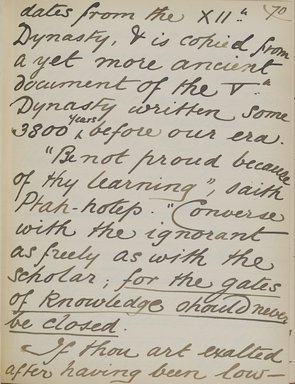 70
dates from the XII.th
Dynasty, & is copied from
a yet more ancient
document of the V.th
Dynasty written some
3800 years before our era.
"Be not proud because
of thy learning", saith
Ptah-hotep. "Converse
with the ignorant
as freely as with the
scholar; for the gates
of knowledge should never
be closed.
If thou art exalted
after having been low-